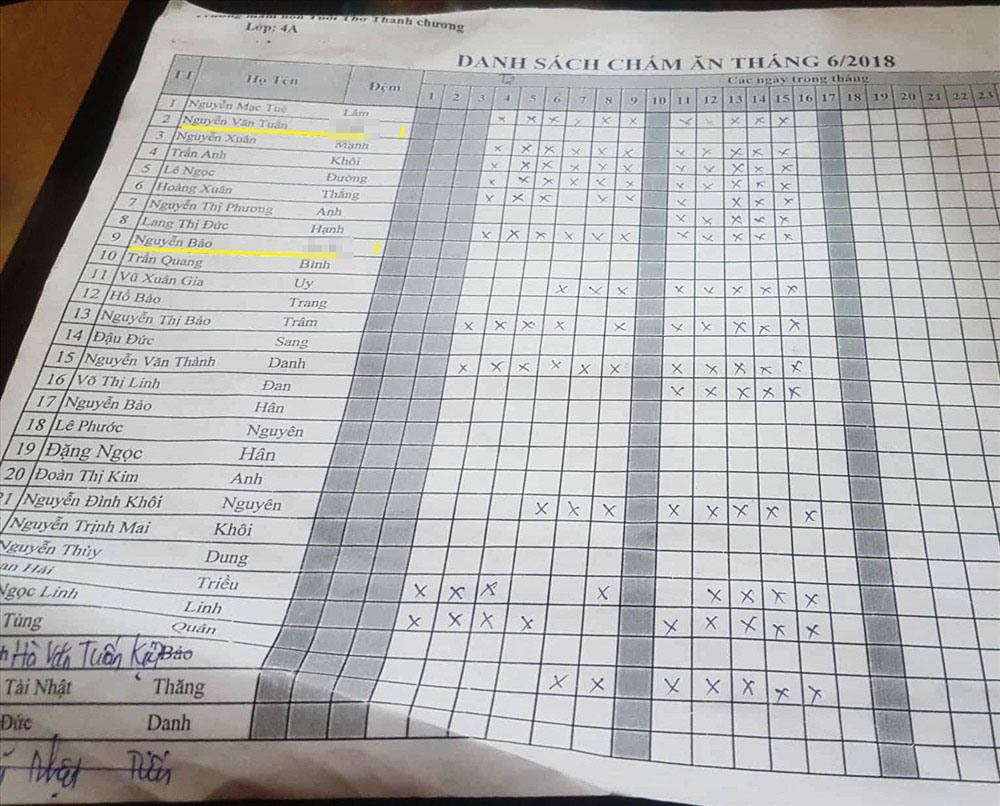 Trường mầm non Tuổi Thơ Thanh chương
Lớp: 4A
DANH SÁCH CHẤM ĂN THÁNG 6/2018
TT Họ Tên Đệm Các ngày trong tháng
1 2 3 4 5 6 7 8 9 10 11 12 13 14 15 16 17 18 19 20 21 22 23
1 Nguyễn Mạc Tuệ Lâm
2 Nguyễn Văn Tuấn
3 Nguyễn Xuân Mạnh
4 Trần Anh Khôi
5 Lê Ngọc Đường
6 Hoàng Xuân Thắng
7 Nguyễn Thị Phương Anh
8 Lang Thị Đức Hạnh
9 Nguyễn Bảo
10 Trần Quang Bình
11 Vũ Xuân Gia Uy
12 Hồ Bảo Trang
13 Nguyễn Thị Bảo Trâm
14 Đậu Đức Sang
15 Nguyễn Văn Thành Danh
16 Võ Thị Linh Đan
17 Nguyễn Bảo Hân
18 Lê Phước Nguyên
19 Đặng Ngọc Hân
20 Đoàn Thị Kim Anh
21 Nguyễn Đình Khôi Nguyên
Nguyễn Trịnh Mai Khôi
Nguyễn Thùy Dung
Hải Triều
Ngọc Linh Linh
Tùng Quân
Hồ Văn Tuấn Kiệt Bảo
Tài Nhật Thăng
Đức Danh
Nhật